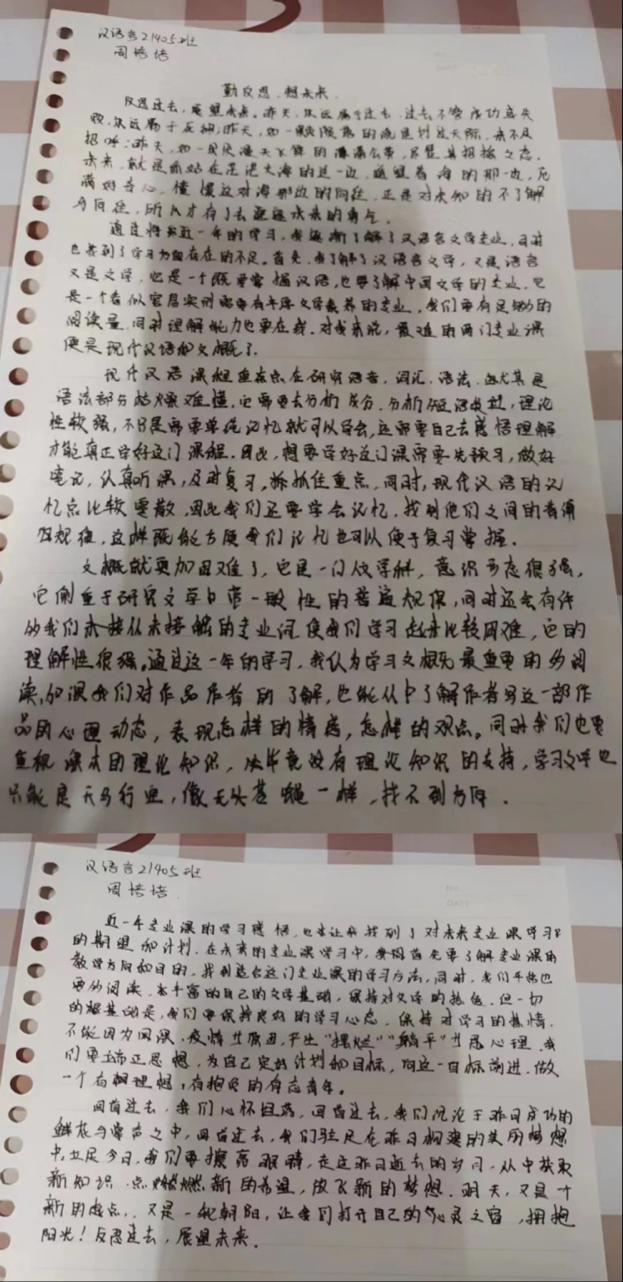 汉语言21405班
周培培
勤反思,想未来.
反思过去,展望未来。昨天,永远属于过去,过去不管成功或失
败,永远属于反相;昨天,如一颗的流星划过天际,来不及
招呼;昨天,如一只只漫天飞舞的,尽显其招摇之态.
未来,就是而站在茫茫大海的这一边,遥望着海的那一边,充
满好奇心,憧憬这对海那边的向往,正是对未知的不了解
与向往,所以才有了去未来的勇气.
通过将近一年的学习,我逐渐了解了汉语言文学专业,同时
也找到了学习方面存在的不足。首先,我了解了汉语言文学,又是语言
又是文学,它是一个既要掌握汉语,也要了解中国文学的专业,它
是一个看似容易实则需要有丰厚文学素养的专业,我们要有足够的
阅读量,同时理解能力也要在线.对我来说,最难的两门专业课
便是现代汉语和文概了.
现代汉语课程重点点在研究语音、词汇、语法,尤其是
语法部分晦难懂,它需要去分析成分,分析短语类型,理论
性较强,不只是需要单纯记忆就可以学会,还需要自己去感悟理解
才能真正学好这门课程.因此,想要学好这门课需要先预习,做好
笔记,认真听课,及时复习,抓住重点,同时,现代汉语的记
忆点比较零散,因此我们还要学会记忆,找到他们之间的普遍
性规律,这样既能方便我们记忆也可以便于复习掌握.
文概就更加困难了,它是一门科学,意识形态很强,
它侧重于研究文学中带一般性的普遍规律,同时还会有许
的我们从未接触的专业词使我们学习起来比较困难,它的
理解性很强.通过这一年的学习,我认为学习文概最重要的多阅
读,加深我们对作品作者的了解,也能从中了解作者写这一部作
品的心理动态,表现怎样的情感,怎样的观点.同时我们也要
重视课本的理论知识,毕竟没有理论知识的支持,学习文学也
只能是天马行空,像无头苍蝇一样,找不到方向.
汉语言21405班
周培培
近一年专业课的学习感悟,也让我找到了对未来专业课学习
的期望和计划.在未来的专业课学习中,要先了解专业课的
教学方向和目的,找到适合这门专业课的学习方法,同时,我们平常也
要多阅读,丰富的自己的文学基础,保持对文学的热爱.但一切
的根基础是,我们要保持良好的学习心态,保持对学习的热情.
不能因为网课,疫情等原因,产生"摆烂""躺平"等心理.我
们要端正思想,为自己定好计划和目标,向这一目标前进,做
一个有理想,有抱负的有志青年.
回首过去,我们心怀坦荡,回首过去,我们沉沦于昨日成功的
鲜花与掌声之中,回首过去,我们驻足在昨日构建的美丽梦想
中,立足今日,我们要擦亮眼睛,在这昨日逝去的岁月,从中获取
新知识,点燃新的希望,放飞新的梦想.明天,又是一个
新的起点,又是一轮朝阳,让我们打开自己的心灵之窗,拥抱
阳光!反思过去,展望未来.